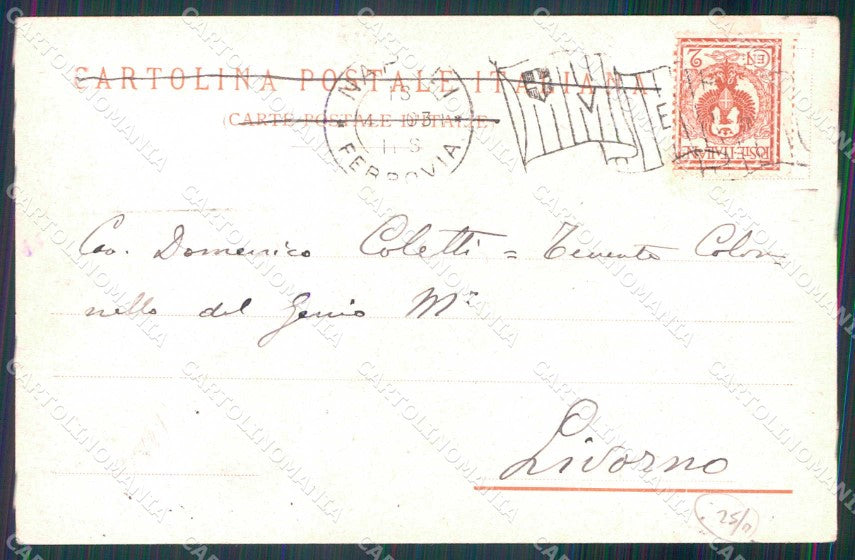 CARTOLINA POSTALE ITALIANA
(CARTE POSTALE ITALIE)
NA
15
03
11 S
FERROVIA
V
E
CEN. 2
POSTE ITALIANE
Cav. Domenico Coletti = Tenente Colon-
nello del Genio Mre
Livorno
25/
CARTOLINOMANIA